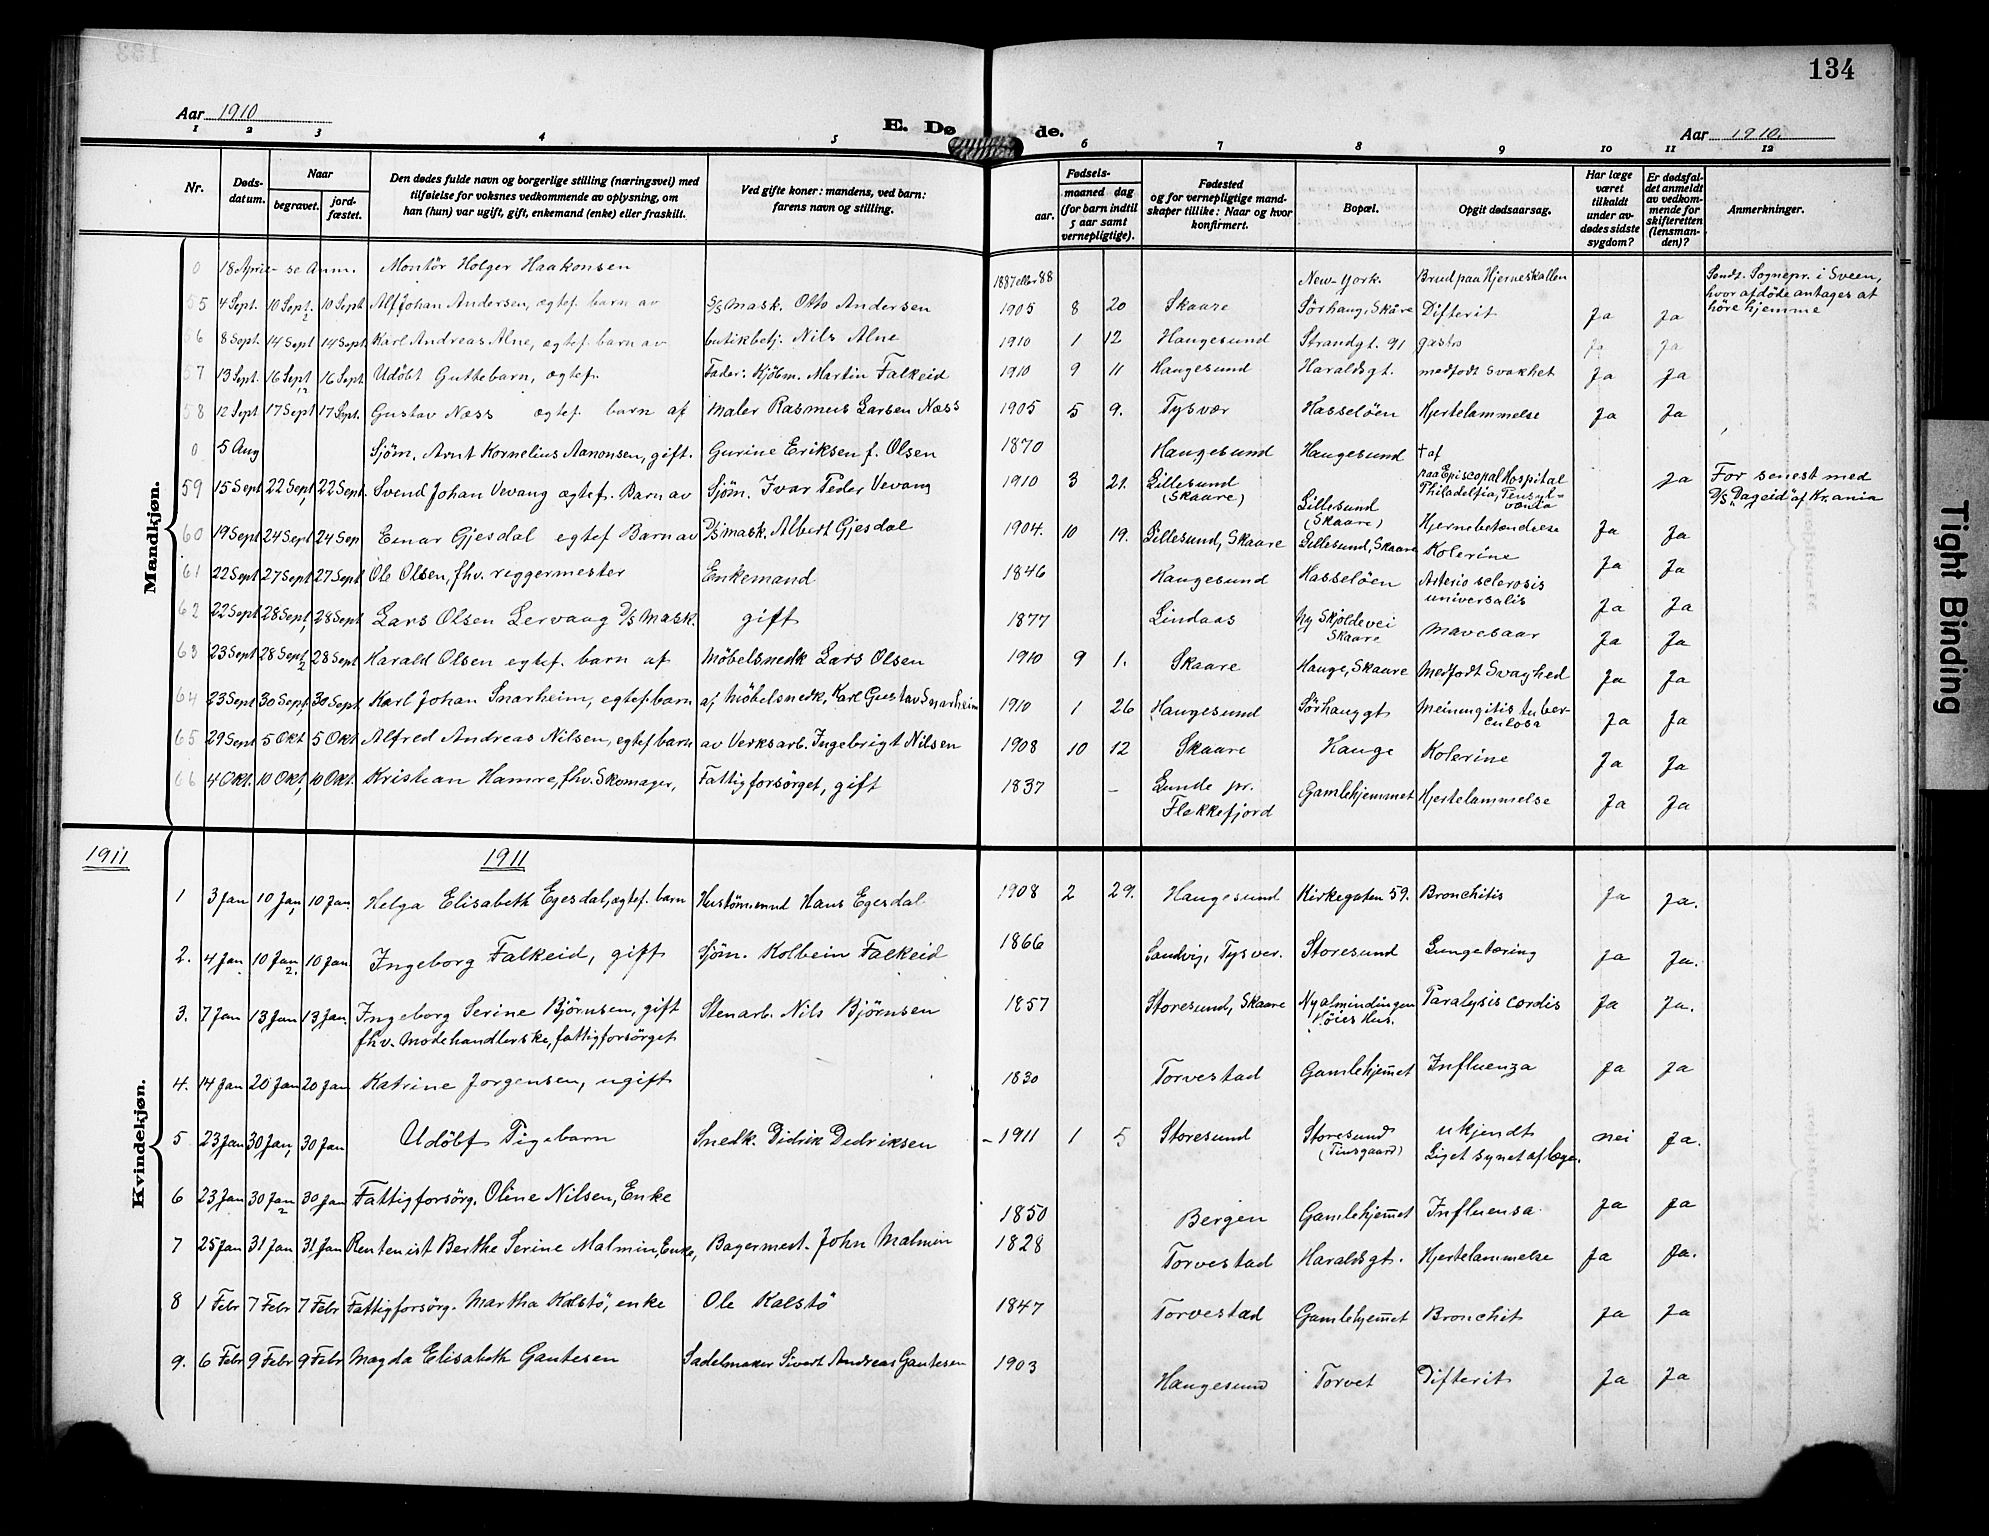 134
Aar 1910
E. Dø de.
Aar 1910.
1 2 3 4 5 6 7 8 9 10 11 12
Nr.
Døds-
datum.
Naar
begravet.
jord-
fæstet.
Den dødes fulde navn og borgerlige stilling (næringsvei) med
tilføielse for voksnes vedkommende av oplysning, om
han (hun) var ugift, gift, enkemand (enke) eller fraskilt.
Ved gifte koner: mandens, ved barn:
farens navn og stilling.
Fødsels-
aar.
maaned dag
(for barn indtil
5 aar samt
vernepligtige).
Fødested
og for vernepligtige mand-
skaper tillike: Naar og hvor
konfirmert.
Bopæl.
Opgit dødsaarsag.
Har læge
været
tilkaldt
under av-
dødes sidste
sygdom?
Er dødsfal-
det anmeldt
av vedkom-
mende for
skifteretten
(lensman-
den)?
Anmerkninger.
Mandkjøn.
0 18 April - se Anm. Montör Holger Haakonsen 1887 eller 88 New-York. Brud paa Hjerneskallen
Sendt Sognepr. i Sveen,
hvor afdöde antages at
höre hjemme
55 4 Sept. 10 Sept. 10 Sept Alf Johan Andersen, egtef. barn av D/S Mask. Otto Andersen 1905 8 20 Skaare Sörhaug, Skåre Difterit Ja Ja
56 8 Sept. 14 Sept 14 Sept Karl Andreas Alne, egtef. barn av butikbetj. Nils Alne 1910 1 12 Haugesund Strandgt. 91 gastro Ja Ja
57 13 Sept. 16 Sept 16 Sept Udöbt Guttebarn, egtef. Fader: Kjöbm. Martin Falkeid 1910 9 11 Haugesund Haraldsgt. medfödt svakhet Ja Ja
58 12 Sept 17 Sept 17 Sept. Gustav Næss egtef. barn af Maler Rasmus Larsen Næss 1905 5 9. Tysvær Hasselöen Hjertelammelse Ja Ja
0 5 Aug Sjöm. Arnt Kornelius Aanonsen, gift. Gurine Eriksen f. Olsen 1870 Haugesund Haugesund † af
paa Episcopal Hospital
Philadelfia, Pensyl-
vania
Ja For senest med
D/S "Dageid" af Kr.ania
59 15 Sept 22 Sept 22 Sept. Svend Johan Vevang egtef. Barn av Sjöm. Ivar Peder Vevang 1910 3 21. Lillesund
(Skaare)
Lillesund
(Skaare)
Hjernebetændelse Ja Ja
60 19 Sept 24 Sept 24 Sep Einar Gjesdal egtef Barn av D/S mask. Albert Gjesdal 1904. 10 19. Lillesund, Skaare Lillesund, Skaare Kolerine Ja Ja
61 22 Sept 27 Sept 27 Sept Ole Olsen, fhv. riggermester Enkemand 1846 Haugesund Hasselöen Arterio sclerosis
universalis Ja Ja
62 22 Sept 28 Sept, 28 Sept Lars Olsen Lervaag D/S Mask. gift 1877 Lindaas Ny Skjoldevei
Skaare
Mavesaar Ja Ja
63 23 Sept 28 Sept 28 Sept Harald Olsen egtef. barn af Möbelsnedk Lars Olsen 1910 9 1. Skaare Hauge, Skaare Medfödt Svaghed Ja Ja
64 23 Sept 30 Sept, 30 Sept Karl Johan Snarheim, egtef. barn af Möbelsnedk. Karl Gustav Snarheim 1910 1 26 Haugesund Sörhauggt Meinungitis tuber-
culosa Ja Ja
65 29 Sept 5 Okt 5 Okt Alfred Andreas Nilsen, egtef barn av Verksarb. Ingebrigt Nilsen 1908 10 12 Skaare Hauge Kolerine Ja Ja
66 4 Okt. 10 Okt, 10 Okt. Kristian Hamre, fhv. Skomager, Fattigforsörget, gift 1837 - Lunde pr.
Flekkefjord
Gamlehjemmet Hjertelammelse Ja Ja
1911
1911
Kvindekjøn.
1 3 Jan 10 Jan, 10 Jan. Helga Elisabeth Egesdal, egtef. barn Hustömmd Hans Egesdal 1908 2 29. Haugesund Kirkegaten 59. Bronchitis Ja Ja.
2. 4 Jan 10 Jan 2. 10 Jan Ingeborg Falkeid, gift Sjöm. Kolbein Falkeid 1866 Sandvig, Tysver. Storesund Lungetæring Ja Ja.
3. 7 Jan 13, Jan 13 Jan. Ingeborg Serine Bjørnsen, gift
fhv. Modehandlerske, fattigforsörget
Stenarb. Nils Bjørnsen 1857 Storesund, Skaare Ny almindingen
Höies Hus.
Paralysis cordis Ja Ja.
4. 14 Jan 20 Jan 20 Jan Katrine Jorgensen, ugift 1830 Torvestad Gamlehjemet Influenza Ja Ja
5 23 Jan 30 Jan, 30 Jan Udöbt Pigebarn Snedk. Didrik Dedriksen - 1911 1 5 Storesund Storesund
(Tinsgaard)
ukjendt
Liget synet af læge. nei Ja.
6 23 Jan 30 Jan 2 30 Jan Fattigforsörg. Oline Nilsen, Enke 1850 Bergen Gamlehjemet Influensa Ja Ja
7 25 Jan 31 Jan 31 Jan Rentenist Berthe Serine Malmin, Enke, Bagermest. John Malmin 1828 Torvestad Haraldsgt. Hjertelammelse Ja Ja.
8 1 Febr 7 Febr 7 Febr Fattigforsörg. Martha Kalstö, enke Ole Kalstö 1847 Torvestad Gamlehjemet Bronchit Ja Ja
9. 6 Febr 9 Febr 9 Febr Magda Elisabeth Gautesen Sadelmaker Sivert Andreas Gautesen 1903 Haugesund Torvet Difterit Ja Ja
Tight Binding